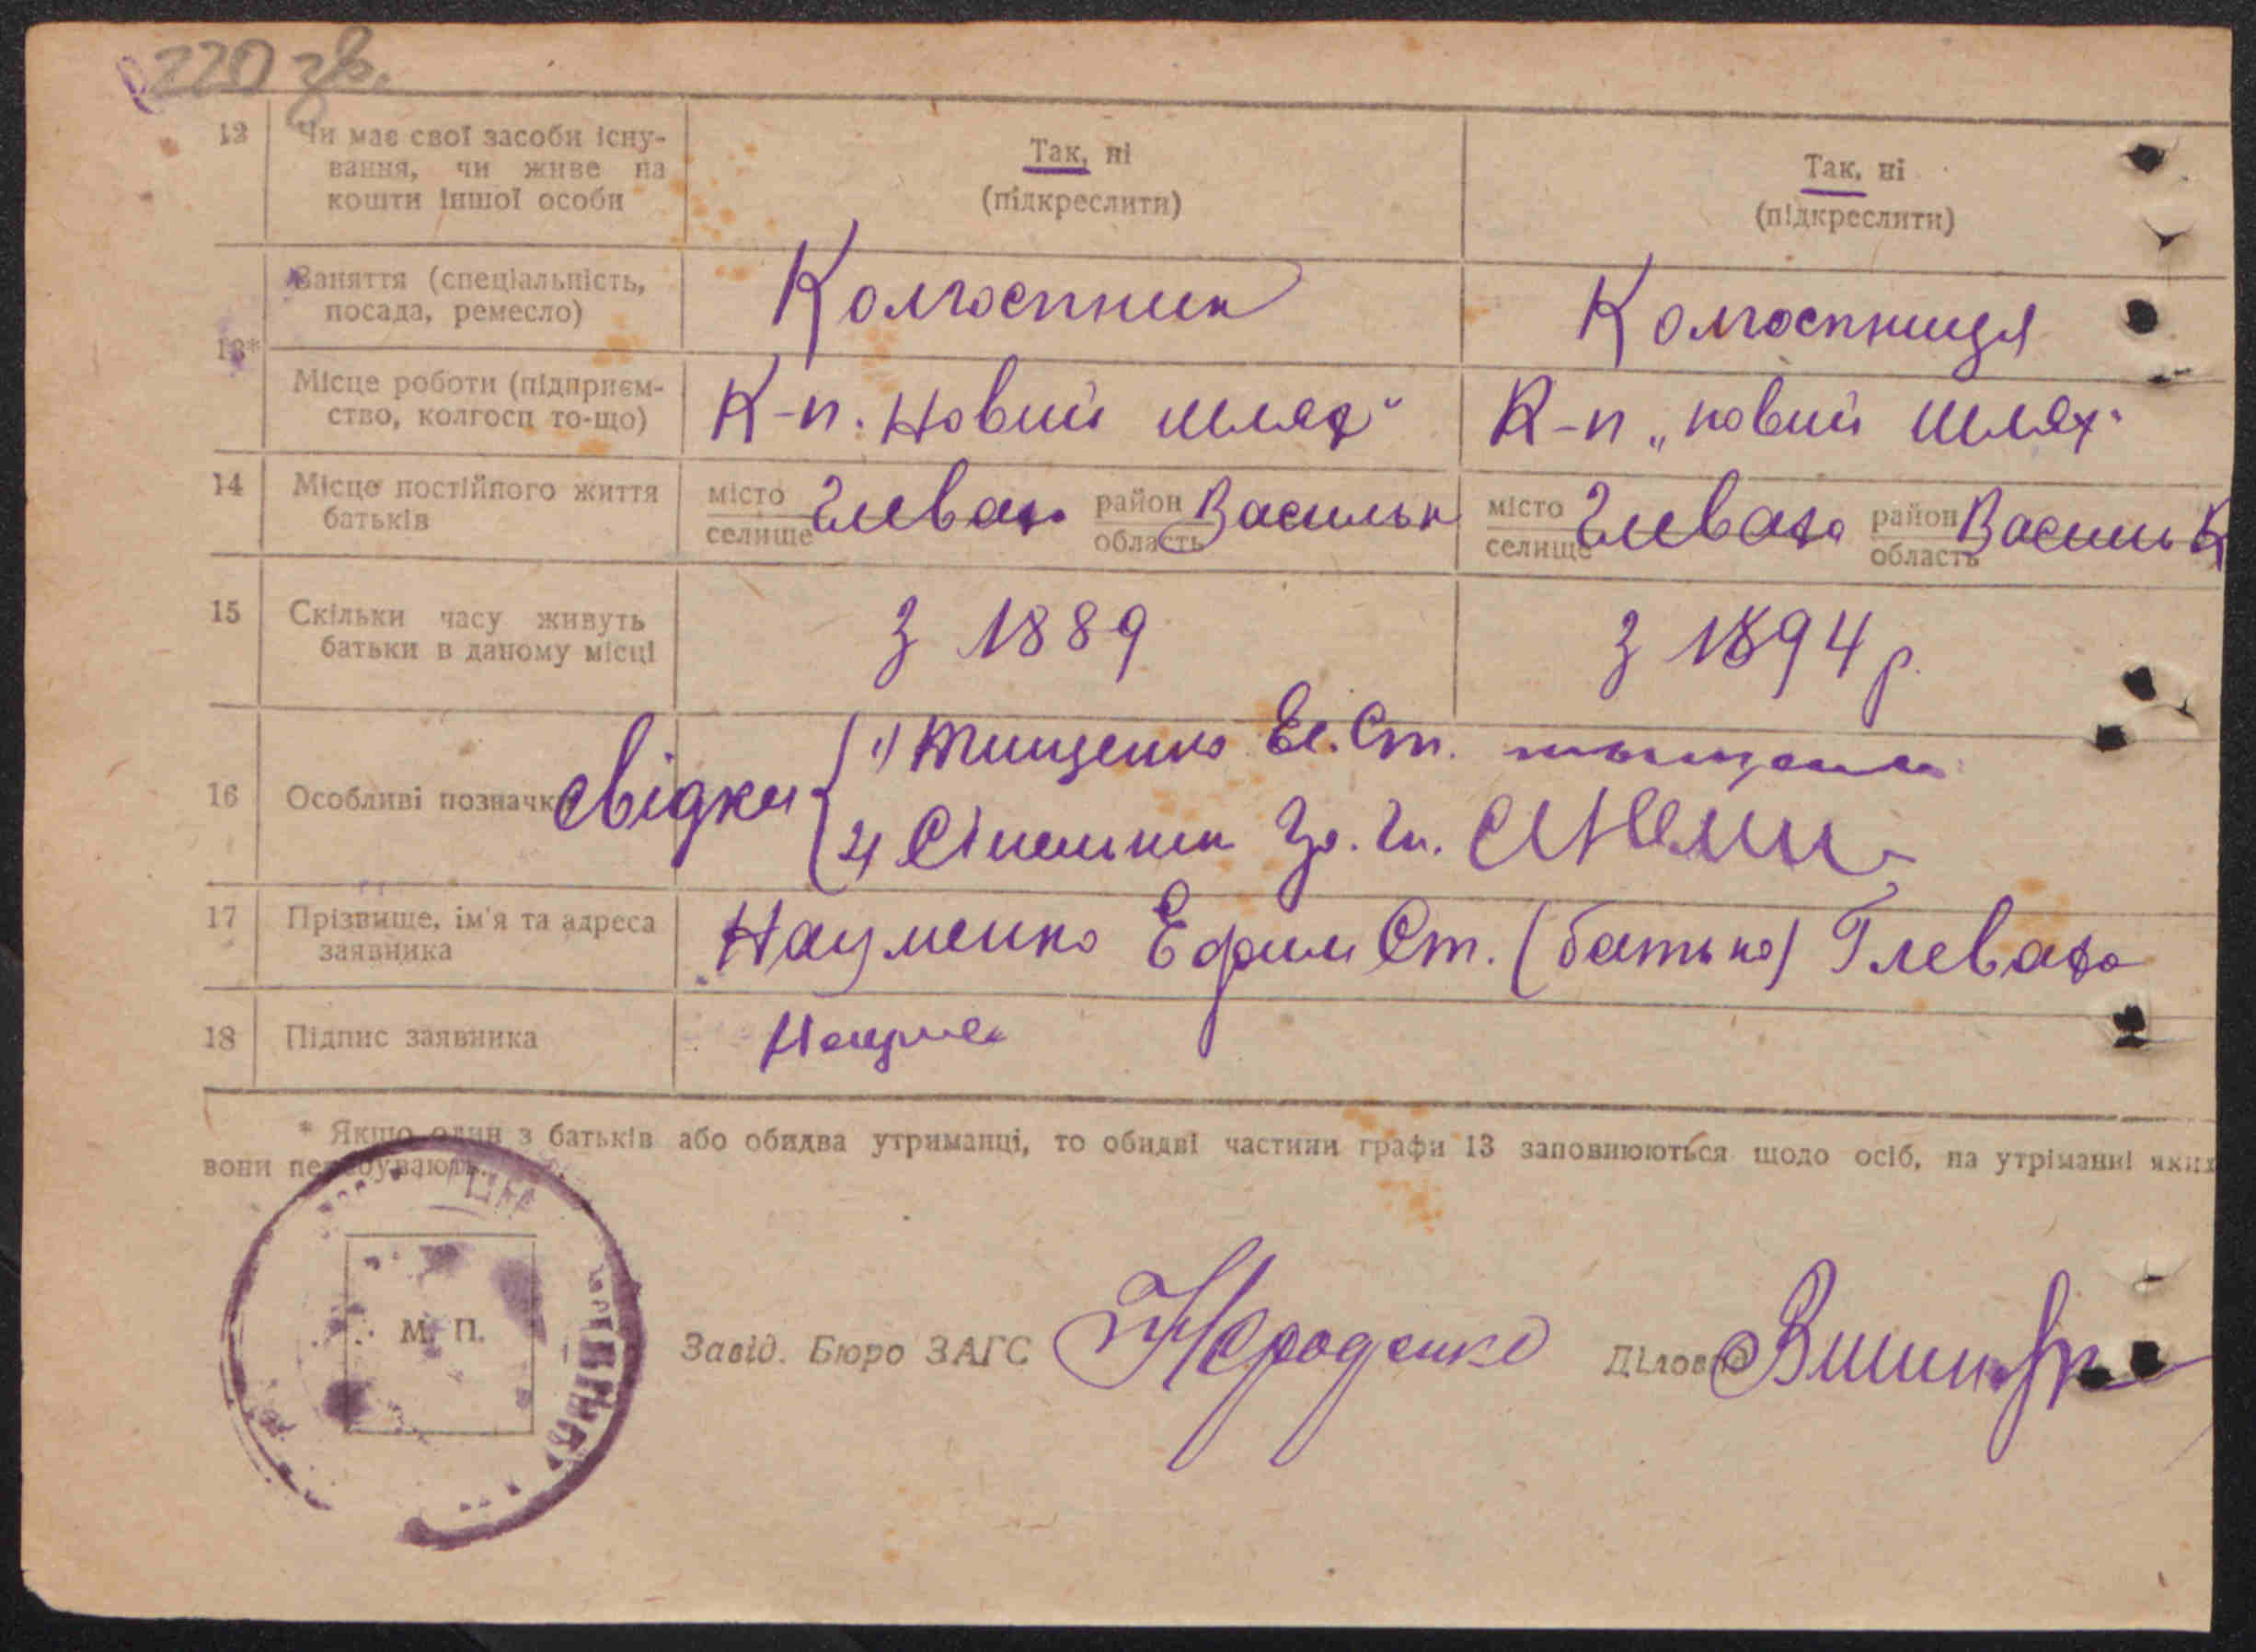 220 зв.
12 Чи має свої засоби існу-
вання, чи живе на
кошти іншої особи
Так, ні
(підкреслити)
Так, ні
(підкреслити)
13*
Заняття (спеціальність,
посада, ремесло)
Колгоспник
Колгоспниця
Місце роботи (підприєм-
ство, колгосп то-що)
К-п. Новий шлях"
К-п „новий шлях"
14 Місце постійного життя
батьків
місто
селище
Глеваха
район
область
Васильк
місто
селище
Глеваха
район
область
Васильк
15 Скільки часу живуть
батьки в даному місці
З 1889
З 1894 р.
16 Особливі позначки
свідки
1) Тищенко Єв. Ст.
2)
17 Прізвище, ім'я та адреса
заявника
Науменко Ефим Ст. (батько) Глеваха
18 Підпис заявника
Науме
* Якщо один з батьків або обидва утриманці, то обидві частини графи 13 заповнюються щодо осіб, на утріманні яких
вони перебувають.
М. П.
Завід. Бюро ЗАГС
Діловод